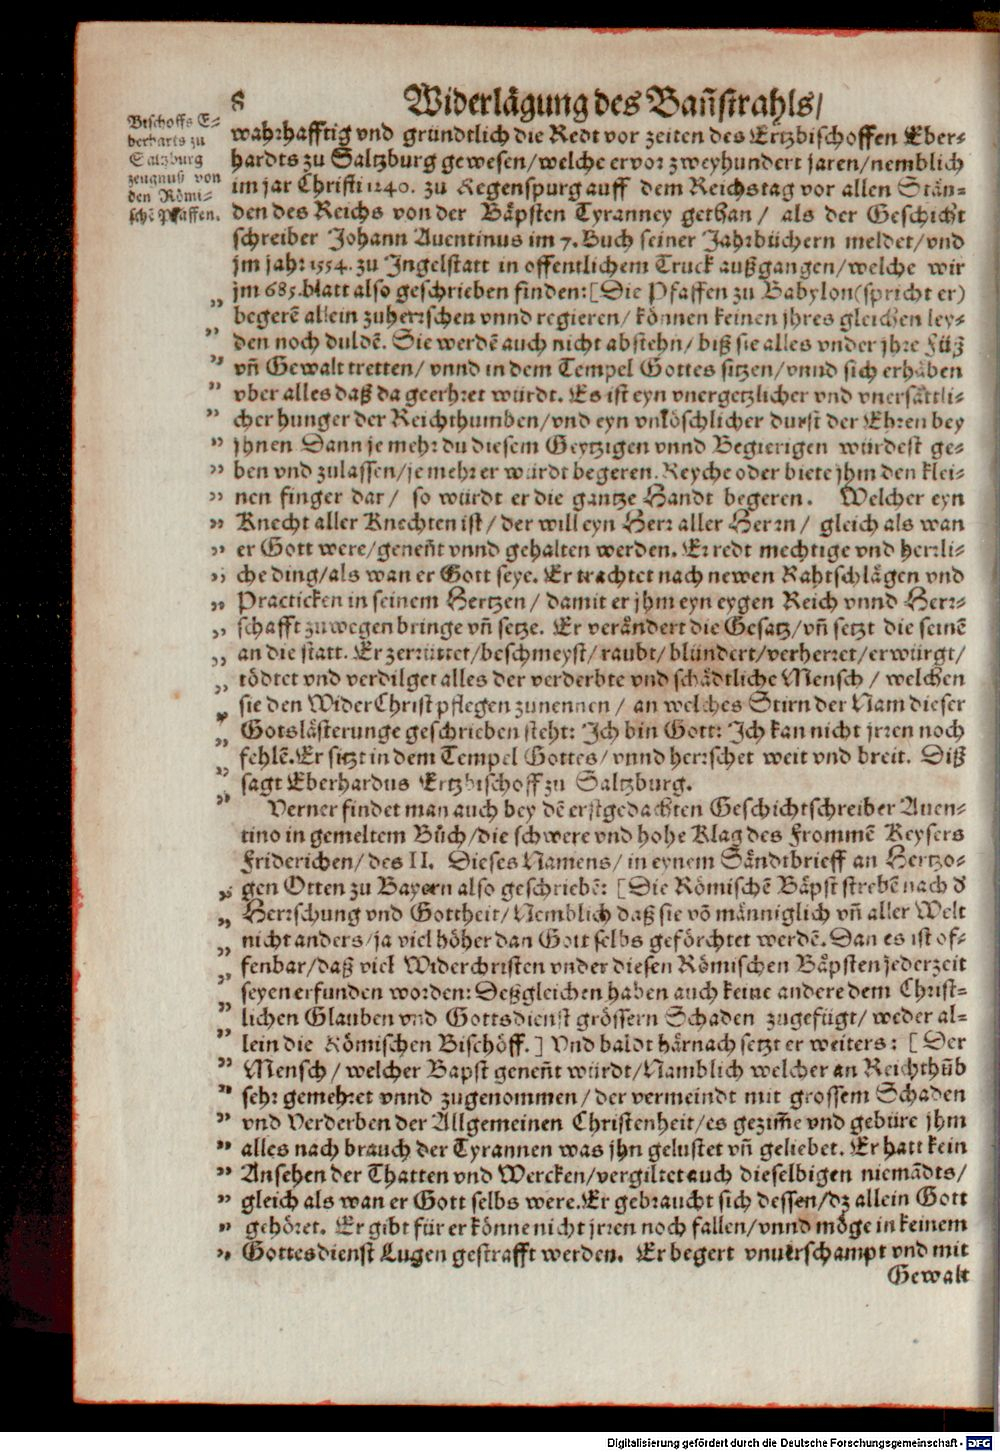 8
Widerlägung des Bañstrahls/
Bischoffs E-
berharts zu
Saltzburg
zeugnuß von
den Römi-
schē Pfaffen.
wahrhafftig vnd gründtlich die Redt vor zeiten des Ertzbischoffen Eber-
hardts zu Saltzburg gewesen/welche er vor zweyhundert jaren/nemblich
im jar Christi 1240. zu Regenspurg auff dem Reichstag vor allen Stän-
den des Reichs von der Bäpsten Tyranney gethan/ als der Geschicht
schreiber Johann Auentinus im 7. Buch seiner Jahrbüchern meldet/vnd
jm jahr 1554. zu Jngelstatt in offentlichem Truck außgangen/welche wir
jm 685. blatt also geschrieben finden: [Die Pfaffen zu Babylon (spricht er)
begerē allein zu herrschen vnnd regieren/ können keinen jhres gleichen ley-
den noch duldē. Sie werdē auch nicht abstehn/ biß sie alles vnder jhre Füß
vñ Gewalt tretten/ vnnd in dem Tempel Gottes sitzen/ vnnd sich erhäben
vber alles daß da geerhret würdt. Es ist eyn vnergetzlicher vnd vnersättli-
cher hunger der Reichthumben/vnd eyn vnlöschlicher durst der Ehren bey
jhnen Dann je mehr du diesem Geytzigen vnnd Begierigen würdest ge-
ben vnd zulassen/je mehr er würdt begeren. Reyche oder biete jhm den klei-
nen finger dar/ so würdt er die gantze Handt begeren. Welcher eyn
Knecht aller Knechten ist/ der will eyn Herr aller Herrn/ gleich als wan
er Gott were/geneñt vnnd gehalten werden. Er redt mechtige vnd herrli-
che ding/als wan er Gott seye. Er trachtet nach newen Rahtschlägen vnd
Practicken in seinem Hertzen/ damit er jhm eyn eygen Reich vnnd Herr-
schafft zuwegen bringe vñ setze. Er verändert die Gesatz/vñ setzt die seinē
an die statt. Er zerrüttet/beschmeyst/raubt/blündert/verherret/erwürgt/
tödtet vnd verdilget alles der verderbte vnd schädtliche Mensch / welchen
sie den WiderChrist pflegen zunennen / an welches Stirn der Nam dieser
Gotslästerunge geschrieben steht: Jch bin Gott: Jch kan nicht jrren noch
fehlē. Er sitzt in dem Tempel Gottes/ vnnd herrschet weit vnd breit. Diß
sagt Eberhardus Ertzbischoff zu Saltzburg.
Verner findet man auch bey dē erstgedachten Geschichtschreiber Auen-
tino in gemeltem Bůch/die schwere vnd hohe Klag des Frommē Keysers
Friderichen/ des II. Dieses Namens/ in eynem Sändtbrieff an Hertzo-
gen Otten zu Bayern also geschriebē: [Die Römischē Bäpst strebē nach d̕
Herrschung vnd Gottheit/ Nemblich daß sie võ männiglich vñ aller Welt
nicht anders/ja viel höher dan Gott selbs geförchtet werdē. Dan es ist of-
fenbar/daß viel Widerchristen vnder diesen Römischen Bäpsten jederzeit
seyen erfunden worden: Deßgleichen haben auch keine andere dem Christ-
lichen Glauben vnd Gottsdienst grössern Schaden zugefügt/ weder al-
lein die Römischen Bischöff.] Vnd baldt härnach setzt er weiters: [Der
Mensch/ welcher Bapst geneñt würdt/Namblich welcher an Reichthüb
sehr gemehret vnnd zugenommen/ der vermeindt mit grossem Schaden
vnd Verderben der Allgemeinen Christenheit/es gezim̃e vnd gebüre jhm
alles nach brauch der Tyrannen was jhn gelustet vñ geliebet. Er hatt kein
Ansehen der Thatten vnd Wercken/vergiltet auch dieselbigen niemādts/
gleich als wan er Gott selbs were. Er gebraucht sich dessen/dz allein Gott
gehöret. Er gibt für er könne nicht jrren noch fallen/vnnd möge in keinem
Gottesdienst Lugen gestrafft werden. Er begert vnuerschampt vnd mit
Gewalt
Digitalisierung gefördert durch die Deutsche Forschungsgemeinschaft - DFG